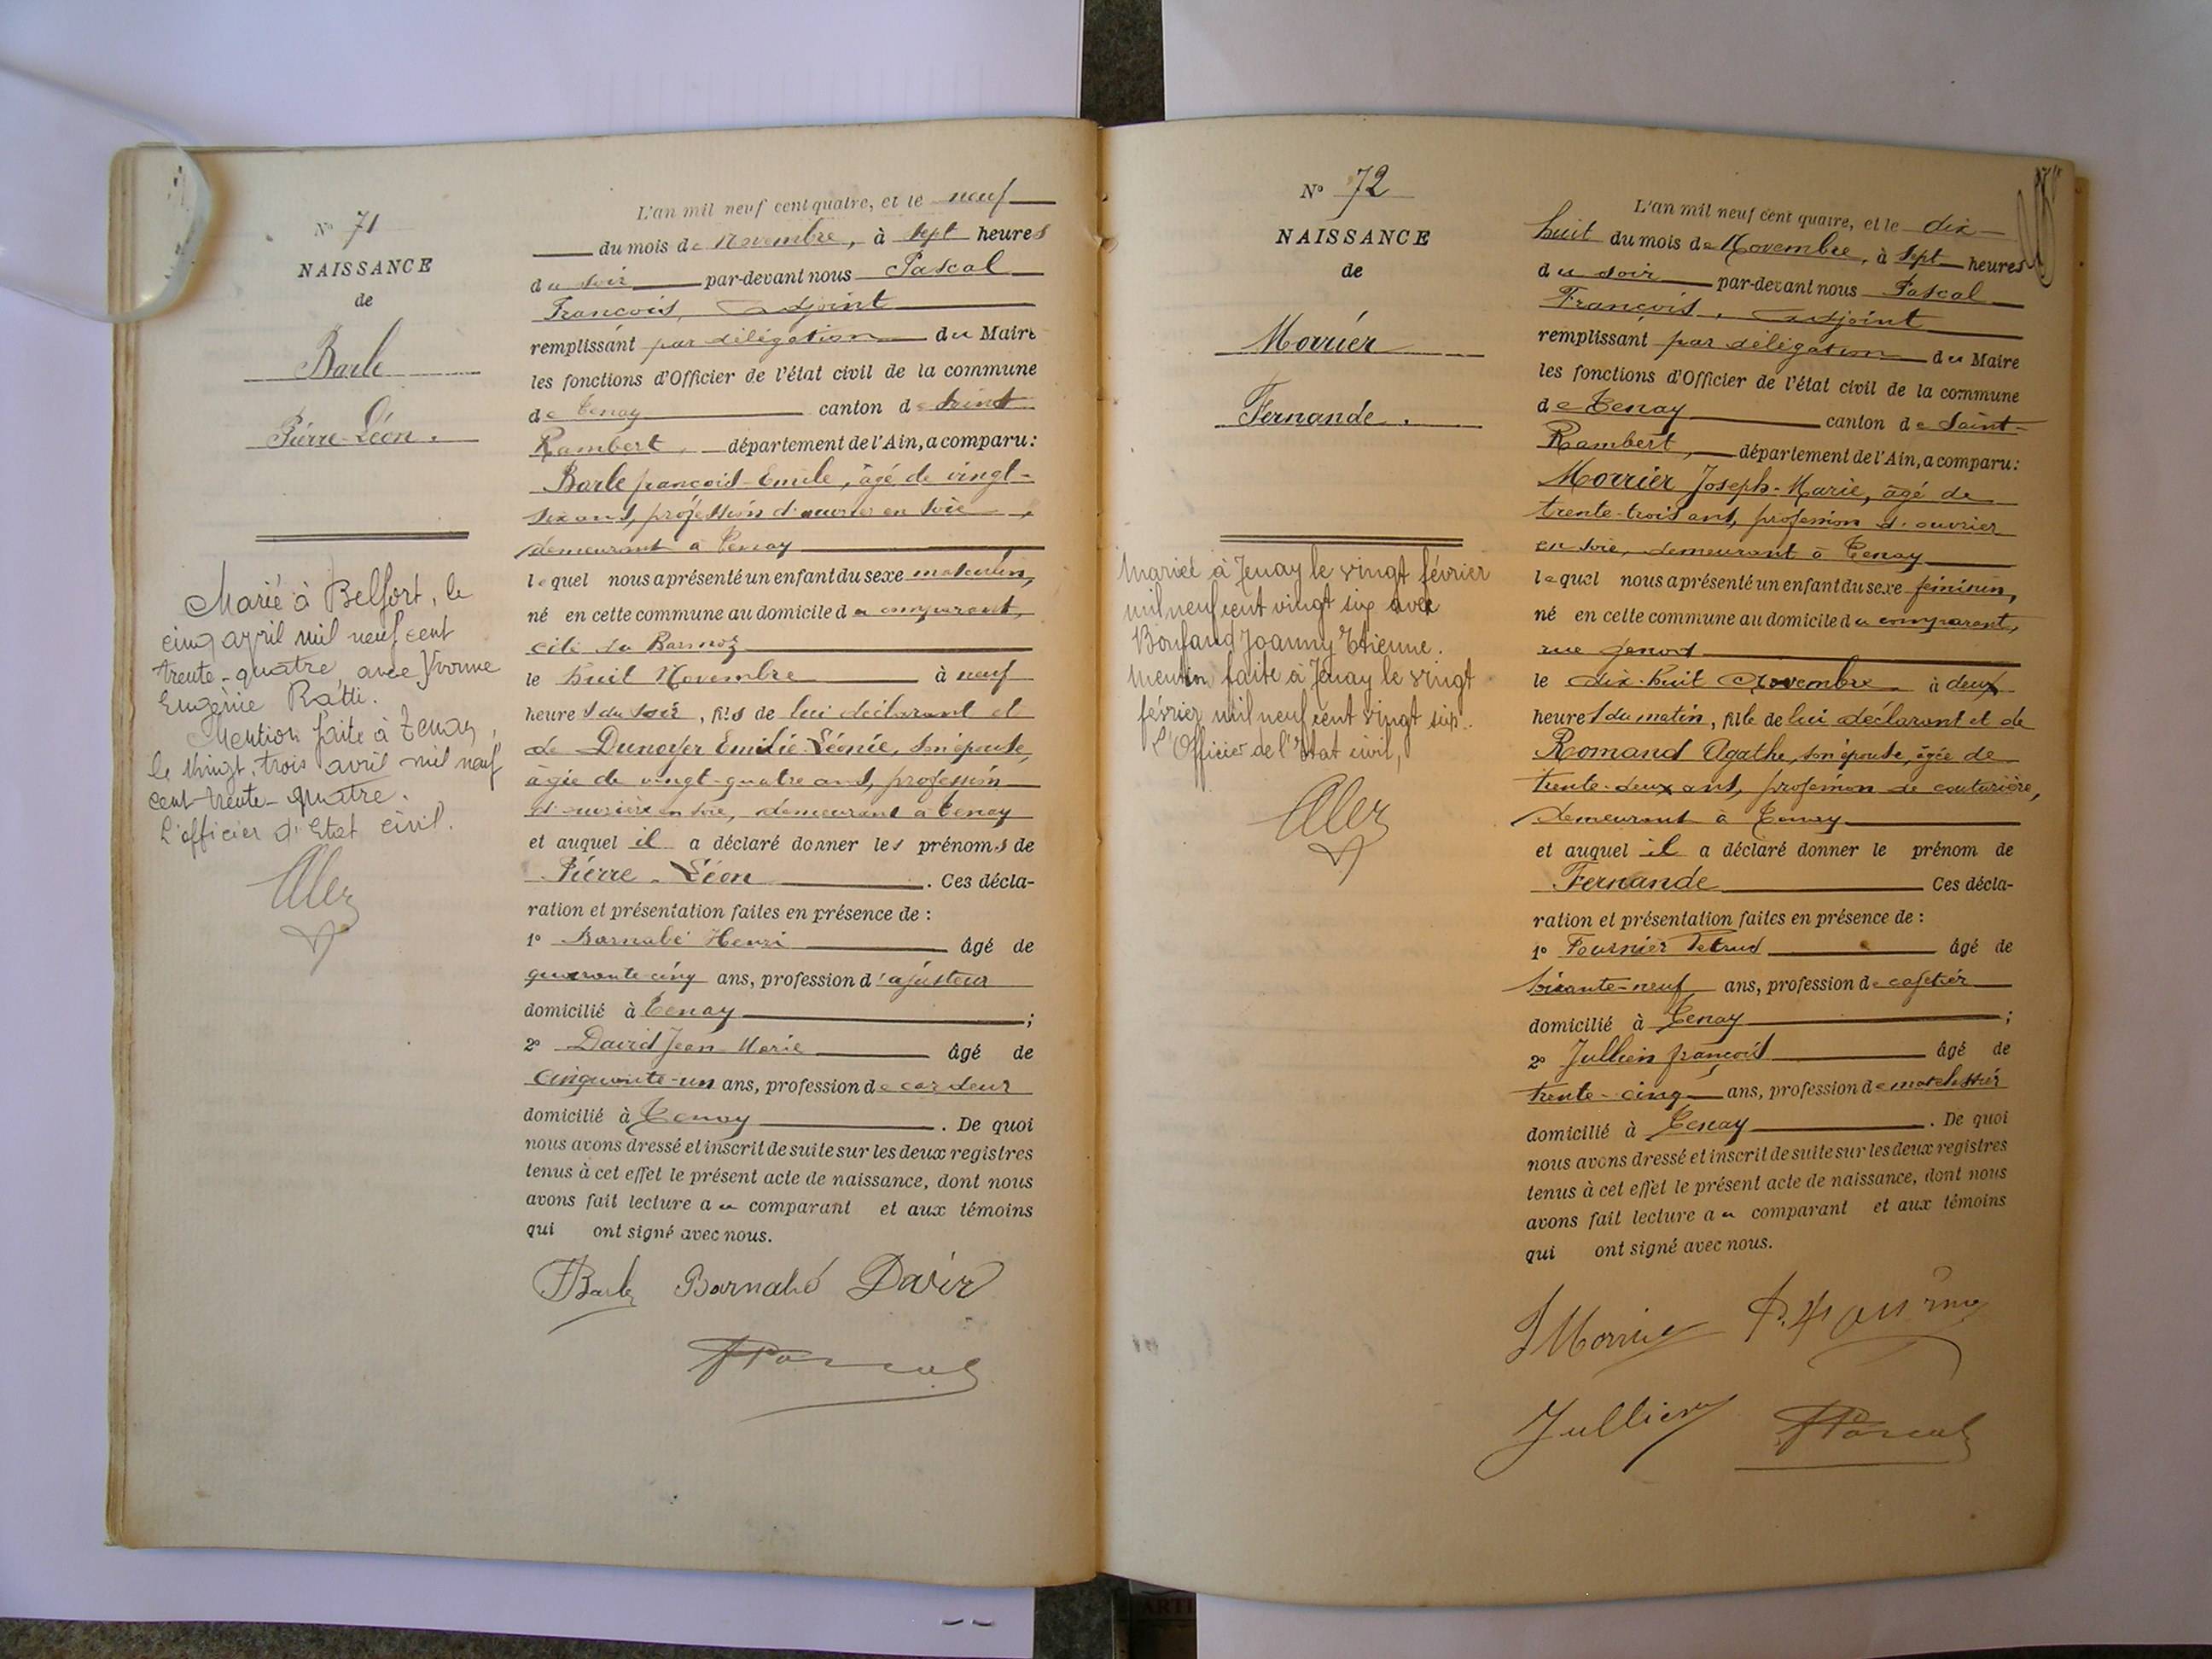 N° 71
NAISSANCE
de
Barle
Pierre-Léon.
Marié à Belfort, le
cinq avril mil neuf cent
trente-quatre, avec Yvonne
Eugènie Ratti.
Mention faite à Tenay,
le vingt-trois avril mil neuf
cent-trente-quatre.
L'officier d'Etat civil.
L'an mil neuf cent quatre, et le neuf
du mois de Novembre, à sept heures
du soir par-devant nous Pascal
François, adjoint
remplissant par délégation du Maire
les fonctions d'Officier de l'état civil de la commune
de Tenay canton de Saint
Rambert, département de l'Ain, a comparu:
Barle françois-Emile, âgé de vingt-
six ans, profession d'ouvrier en soie,
demeurant à Tenay
lequel nous a présenté un enfant du sexe masculin,
né en cette commune au domicile du comparant,
cité du
le huit Novembre à neuf
heures du soir, fils de lui déclarant et
de Dunoyer Emilie-Léonie, son épouse,
âgée de vingt-quatre ans, profession
d'ouvrière en soie, demeurant à Tenay
et auquel il a déclaré donner les prénoms de
Pierre-Léon. Ces décla-
ration et présentation faites en présence de :
1° Barnabé Henri âgé de
quarante-cinq ans, profession d'ajusteur
domicilié à Tenay ;
2° David Jean-Marie âgé de
cinquante-un ans, profession de cardeur
domicilié à Tenay. De quoi
nous avons dressé et inscrit de suite sur les deux registres
tenus à cet effet le présent acte de naissance, dont nous
avons fait lecture au comparant et aux témoins
qui ont signé avec nous.
FBarle Barnabé David
FPascal
N° 72
NAISSANCE
de
Morrier
Fernande.
Mariée à Tenay le vingt février
mil neuf cent vingt six avec
Bonfand Joanny Etienne.
Mention faite à Tenay le vingt
février mil neuf cent vingt six.
L'Officier de l'Etat civil,
L'an mil neuf cent quatre, et le dix-
huit du mois de Novembre, à sept heures
du soir par-devant nous Pascal
François, adjoint
remplissant par délégation du Maire
les fonctions d'Officier de l'état civil de la commune
de Tenay canton de Saint-
Rambert, département de l'Ain, a comparu:
Morrier Joseph-Marie, âgé de
trente-trois ans, profession d'ouvrier
en soie, demeurant à Tenay
lequel nous a présenté un enfant du sexe féminin,
né en cette commune au domicile du comparant,
rue
le dix-huit Novembre à deux
heures du matin, fille de lui déclarant et de
Romand Agathe, son épouse, âgée de
trente-deux ans, profession de couturière,
demeurant à Tenay
et auquel il a déclaré donner le prénom de
Fernande Ces décla-
ration et présentation faites en présence de :
1° Fournier Petrus âgé de
soixante-neuf ans, profession de cafetier
domicilié à Tenay ;
2° Jullien françois âgé de
trente-cinq ans, profession de matelassier
domicilié à Tenay. De quoi
nous avons dressé et inscrit de suite sur les deux registres
tenus à cet effet le présent acte de naissance, dont nous
avons fait lecture au comparant et aux témoins
qui ont signé avec nous.
JMorrier
Jullien FPascal